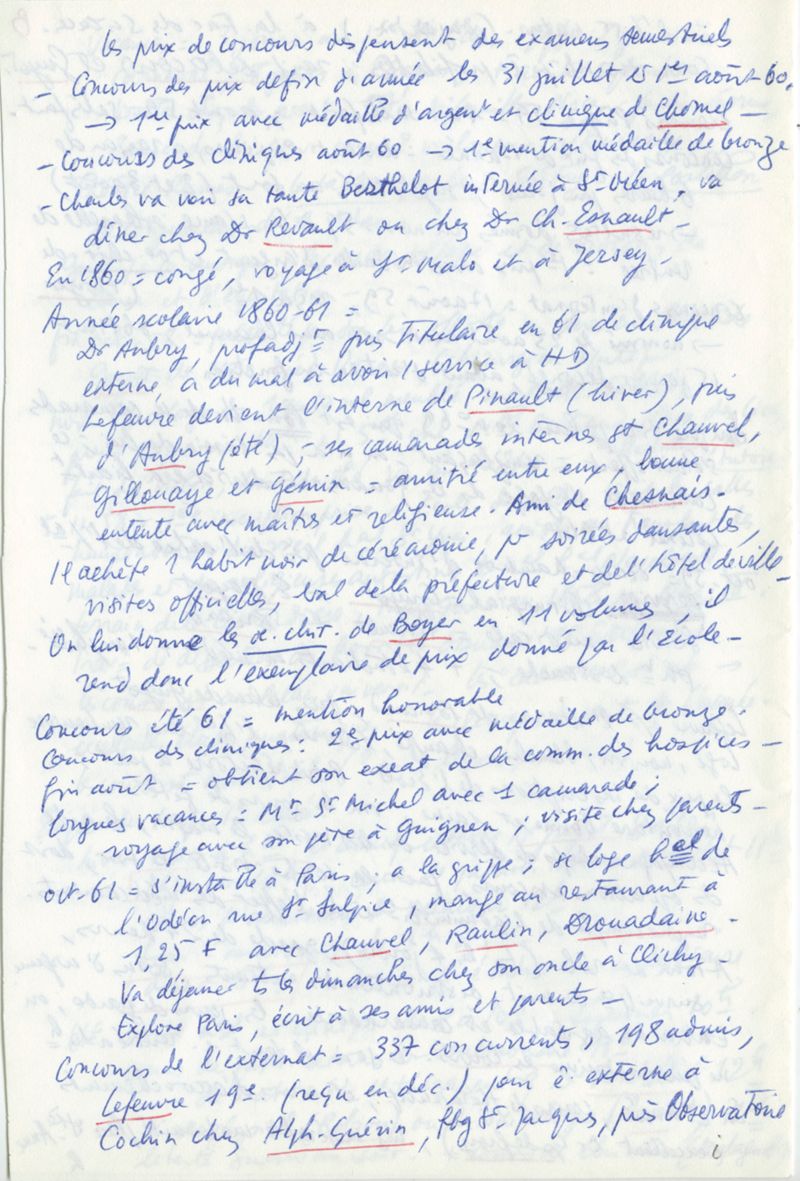 les prix de concours dispensent des examens semestriels
– Concours des prix de fin d'année les 31 juillet et 1er août 60.
→ 1er prix avec médaille d'argent et clinique de Chomel –
– Concours des cliniques août 60 → 1e mention médaille de bronze
– Charles va voir sa tante Berthelot internée à St Méen, va
dîner chez Dr Revault ou chez Dr Ch. Esnault –
En 1860 = congé, voyage à St Malo et à Jersey –
Année scolaire 1860-61 =
Dr Aubry, prof adjt puis titulaire en 61 de clinique
externe, a du mal à avoir 1 service à HD
Lefeuvre devient l'interne de Pinault (hiver), puis
d'Aubry (été) ; – ses camarades internes st Chauvel,
Gillouaye et Gémin = amitié entre eux, bonne
entente avec maîtres et religieuse. Ami de Chesnais.
Il achète 1 habit noir de cérémonie, pr soirées dansantes,
visites officielles, bal de la préfecture et de l'hôtel de ville –
On lui donne les œ. chir. de Boyer en 11 volumes, il
rend donc l'exemplaire de prix donné par l'École –
Concours été 61 = mention honorable
Concours des cliniques : 2e prix avec médaille de bronze.
fin août = obtient son exeat de la comm. des hospices –
longues vacances = Mt St Michel avec 1 camarade ;
voyage avec son père à Guignen ; visite chez parents –
oct. 61 = s'installe à Paris ; a la grippe ; se loge hel de
l'Odéon rue St Sulpice, mange au restaurant à
1,25 F avec Chauvel, Raulin, Drouadaine –
Va déjeuner ts les dimanches chez son oncle à Clichy –
Explore Paris, écrit à ses amis et parents –
Concours de l'externat = 337 concurrents, 198 admis,
Lefeuvre 19e. (reçu en déc.) pour ê externe à
Cochin chez Alph. Guérin, fbg St Jacques, près Observatoire